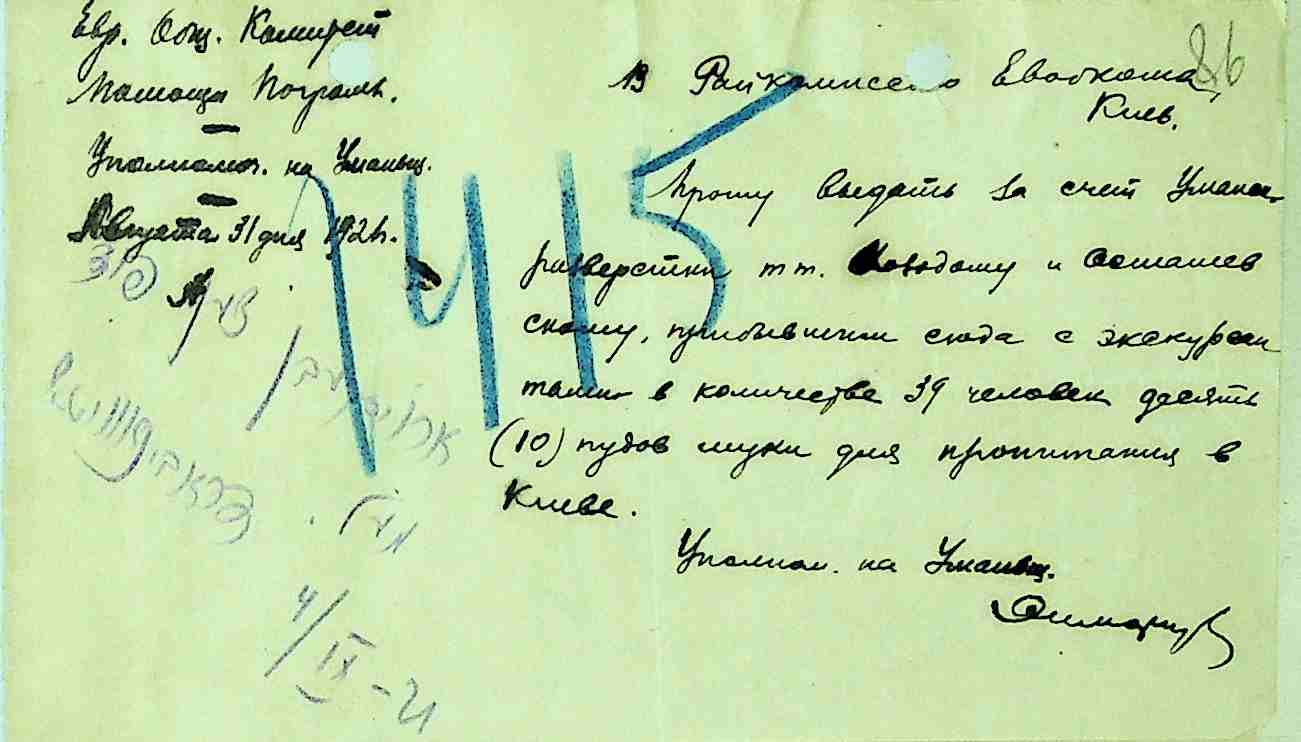 Евр. Общ. Комитет
Помощи Погромл.
Уполномоч. на Уманьщ.
Августа 31 дня 1921 г.
№
86
В Райкомиссию Евобкома
Киев.
1415
Прошу выдать за счет Уманск.
разверстки т.т. и Осташев
скому, прибывшим сюда с экскурсан
тами в количестве 39 человек десять
(10) пудов муки для пропитания в
Киеве.
Уполном. на Уманьщ.
4/IX-21